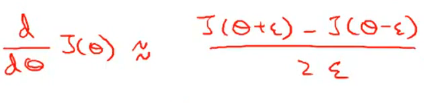 d/dθ J(θ) ≈ (J(θ+ε) - J(θ-ε)) / 2ε